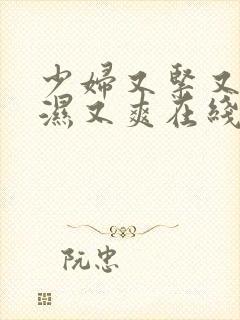 少婦又緊又
濕又爽在綫
阮忠